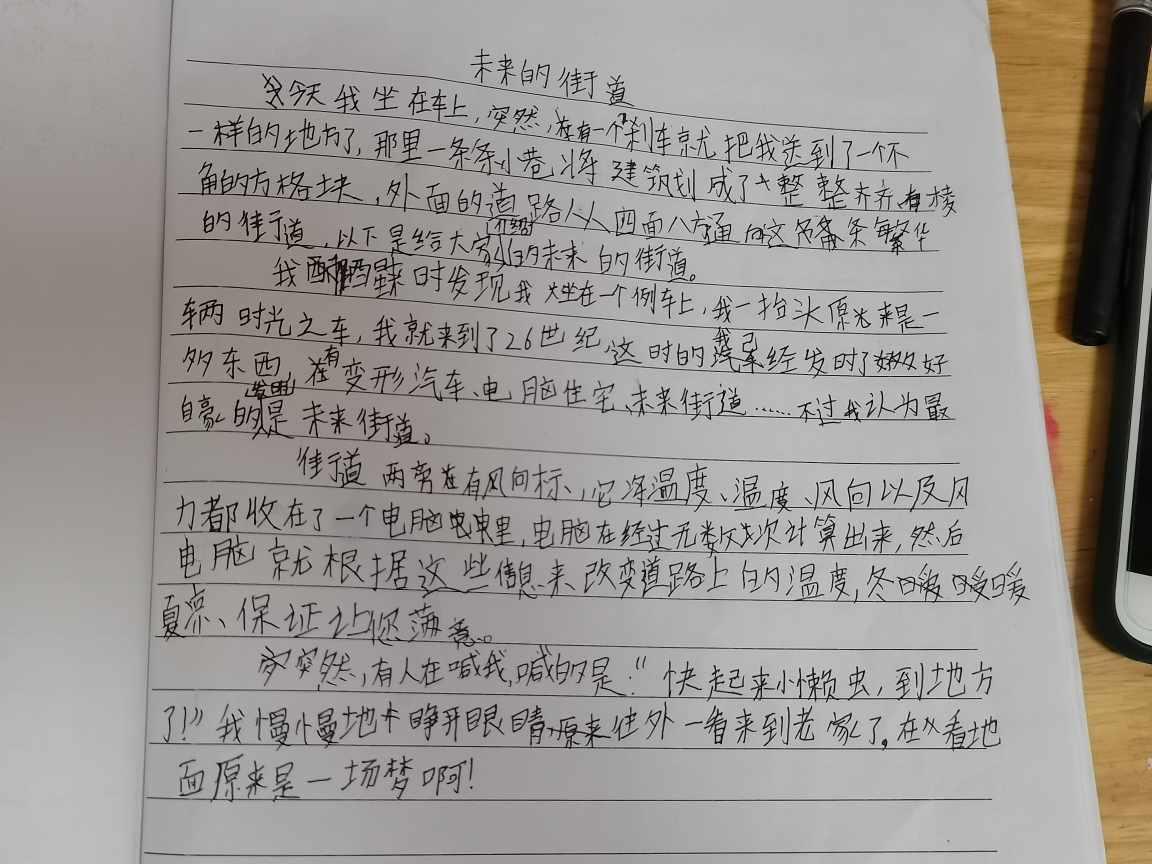 未来的街道
今天我坐在车上,突然,在有一个刹车就把我送到了一个不
一样的地方了,那里一条条小巷将建筑划成了整整齐齐有棱
角的方格块,外面的道路从四面八方通向这条繁华
的街道,以下是给大家介绍的未来的街道。
我醒来时发现我坐在一个例车上,我一抬头原来是一
辆时光之车,我就来到了26世纪,这时的我已经发时了好
多东西,有变形汽车、电脑住宅、未来街道……不过我认为最
自豪的发明是未来街道。
街道两旁在有风向标,它将温度、温度、风向以及风
力都收在了一个电脑里,电脑在经过无数次计算出来,然后
电脑就根据这些信息来改变道路上的温度,冬暖
夏凉、保证让您满意。
突然,有人在喊我,喊的是:"快起来小懒虫,到地方
了!"我慢慢地睁开眼睛,原来往外一看来到老家了,在看地
面原来是一场梦啊!